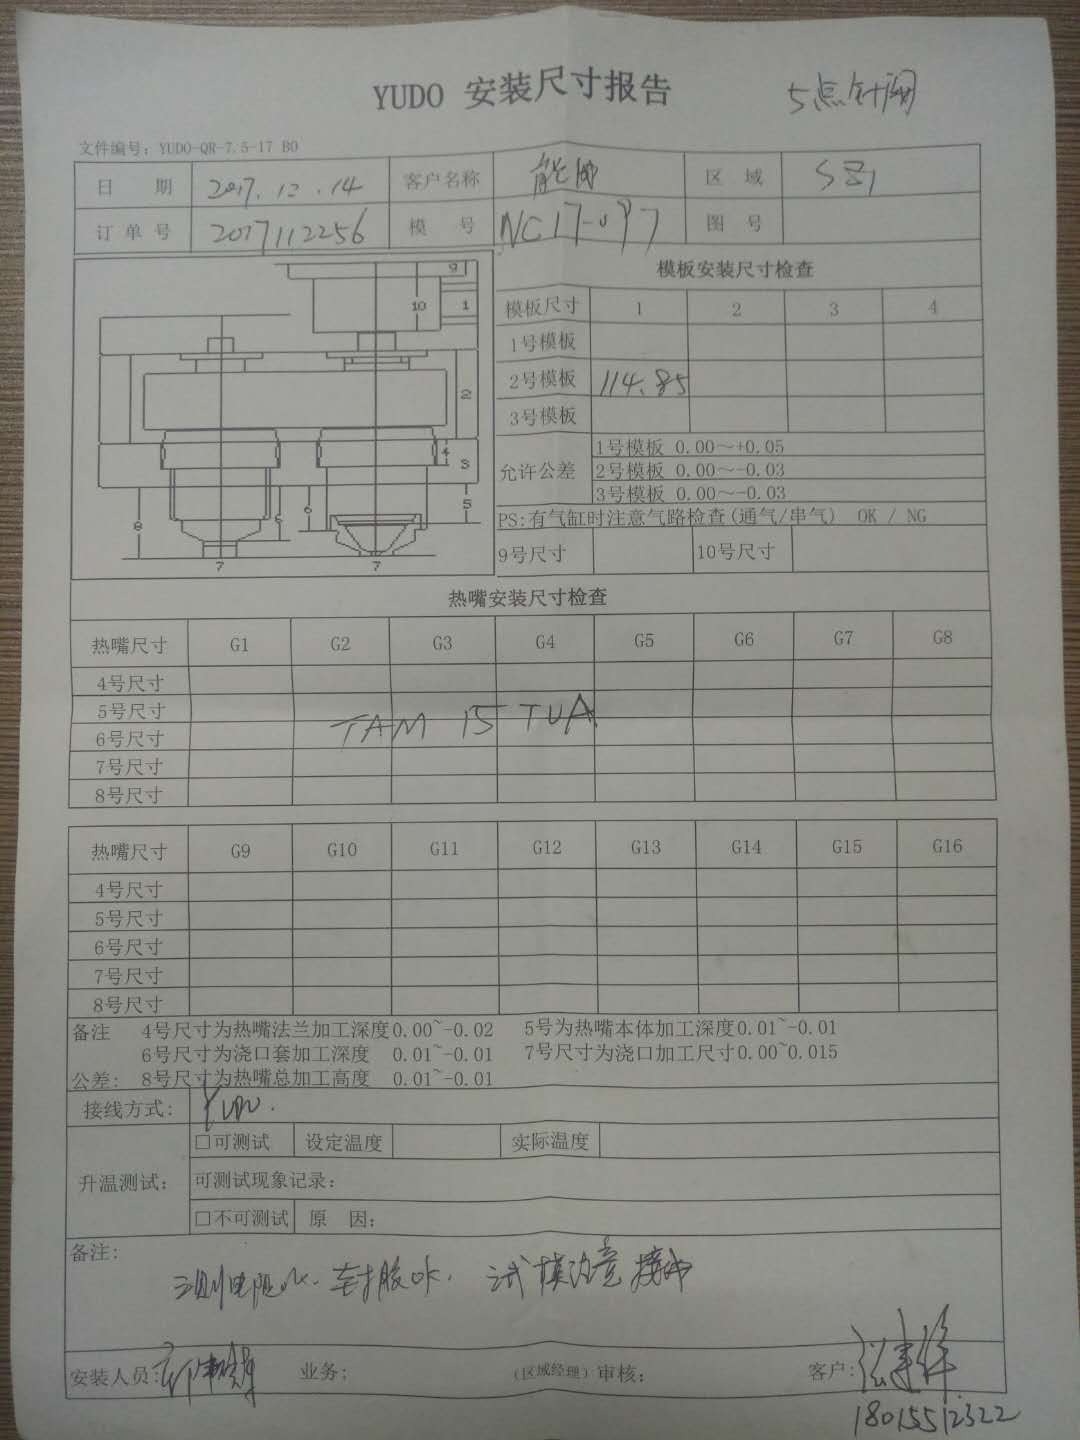 YUDO 安装尺寸报告 5点针阀
文件编号：YUDO-QR-7.5-17 B0
日 期 2017.12.14 客户名称 区 域 SZ1
订单号 2017112256 模 号 NC17-097 图 号
模板安装尺寸检查
9
10 1
2
4 3
5
8 6 6
7 7
模板尺寸 1 2 3 4
1号模板
2号模板 114.85
3号模板
允许公差 1号模板 0.00～+0.05
2号模板 0.00～-0.03
3号模板 0.00～-0.03
PS:有气缸时注意气路检查(通气/串气) OK / NG
9号尺寸 10号尺寸
热嘴安装尺寸检查
热嘴尺寸 G1 G2 G3 G4 G5 G6 G7 G8
4号尺寸
5号尺寸
TAM 15 TUA
6号尺寸
7号尺寸
8号尺寸
热嘴尺寸 G9 G10 G11 G12 G13 G14 G15 G16
4号尺寸
5号尺寸
6号尺寸
7号尺寸
8号尺寸
备注 4号尺寸为热嘴法兰加工深度0.00~-0.02 5号为热嘴本体加工深度0.01~-0.01
6号尺寸为浇口套加工深度 0.01~-0.01 7号尺寸为浇口加工尺寸0.00~0.015
公差: 8号尺寸为热嘴总加工高度 0.01~-0.01
接线方式: YUDO.
升温测试: □可测试 设定温度 实际温度
可测试现象记录:
□不可测试 原 因:
备注:
测电阻ok. 封胶ok. 试模注意
安装人员: 业务: (区域经理)审核: 客户:
18015512322